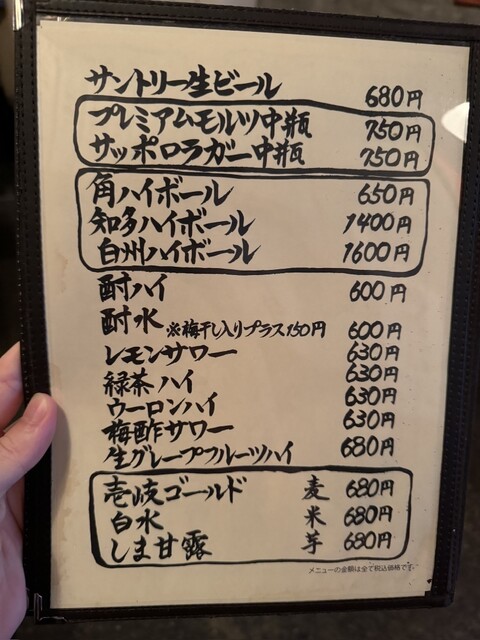 サントリー生ビール 680円
プレミアムモルツ中瓶 750円
サッポロラガー中瓶 750円
角ハイボール 650円
知多ハイボール 1400円
白州ハイボール 1600円
酎ハイ 600円
酎水 ※梅干し入りプラス150円 600円
レモンサワー 630円
緑茶ハイ 630円
ウーロンハイ 630円
梅酢サワー 630円
生グレープフルーツハイ 680円
壱岐ゴールド 麦 680円
白水 米 680円
しま甘露 芋 680円
メニューの金額は全て税込価格です。